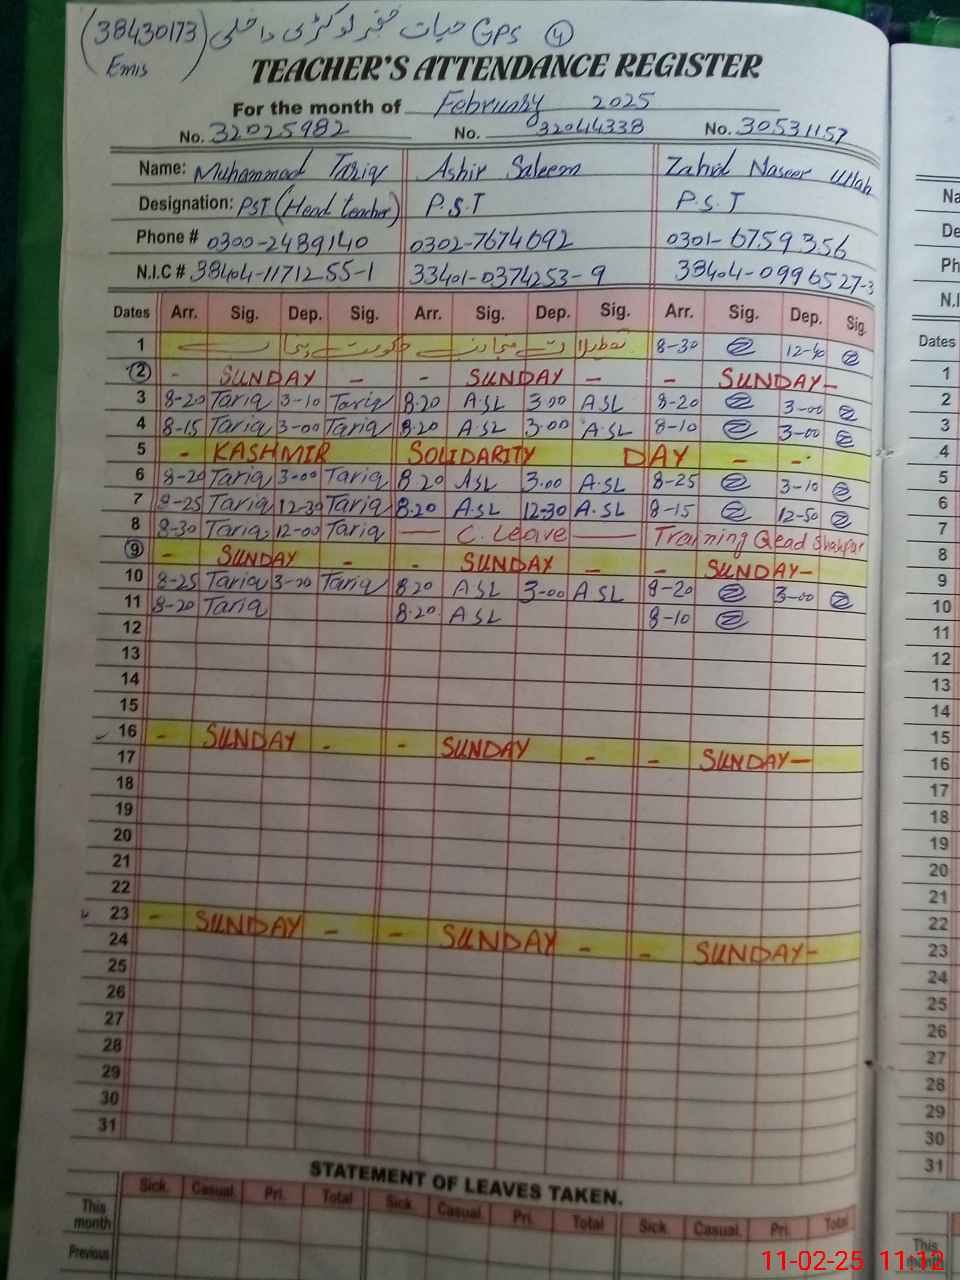 (38430173) حیات خضر لوکڑی داخلی GPS 4
Emis
TEACHER'S ATTENDANCE REGISTER
For the month of February 2025
No. 32025982 No. 32044338 No. 30531157
Name: Muhammad Tariq Ashir Saleem Zahid Naseer Ullah
Designation: PST (Head teacher) P.S.T P.S.T
Phone # 0300-2489140 0302-7674692 0301-6759356
N.I.C # 38404-1171255-1 33401-0374253-9 38404-0996527-3
Dates Arr. Sig. Dep. Sig. Arr. Sig. Dep. Sig. Arr. Sig. Dep. Sig.
1 تعطیلات منجانب حکومت پنجاب 8-30 12-40
2 - SUNDAY - - SUNDAY - - SUNDAY-
3 8-20 Tariq 3-10 Tariq 8.20 ASL 3.00 ASL 8-20 3-00
4 8-15 Tariq 3-00 Tariq 8.20 ASL 3.00 A.SL 8-10 3-00
5 - KASHMIR SOLIDARITY DAY - -
6 8-20 Tariq 3-00 Tariq 8.20 ASL 3.00 A.SL 8-25 3-10
7 8-25 Tariq 12-30 Tariq 8.20 A.SL 12-30 A.SL 8-15 12-50
8 8-30 Tariq 12-00 Tariq — C. Leave — Training Shahpur
9 - SUNDAY - - SUNDAY - - SUNDAY-
10 8-25 Tariq 3-00 Tariq 8.20 ASL 3-00 ASL 8-20 3-00
11 8-20 Tariq 8.20 ASL 8-10
12
13
14
15
16 - SUNDAY - - SUNDAY - - SUNDAY-
17
18
19
20
21
22
23 - SUNDAY - - SUNDAY - - SUNDAY-
24
25
26
27
28
29
30
31
STATEMENT OF LEAVES TAKEN.
Sick. Casual. Pri. Total Sick. Casual. Pri. Total Sick. Casual. Pri. Total
This month
Previous
Na
De
Ph
N.I
Dates
1
2
3
4
5
6
7
8
9
10
11
12
13
14
15
16
17
18
19
20
21
22
23
24
25
26
27
28
29
30
31
This
11-02-25 11:12